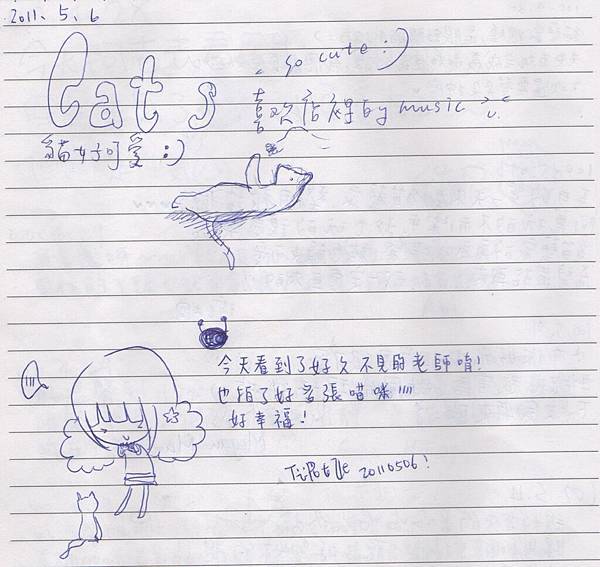 2011. 5. 6
Cats
so cute :)
喜歡店裡 by music
貓好可愛 :)
今天看到了好久不見的老師唷!
也拍了好多張喵咪!!!!
好幸福!
20110506!